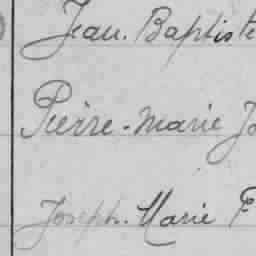 Jean. Baptiste
Pierre-Marie Jo
Joseph-Marie F